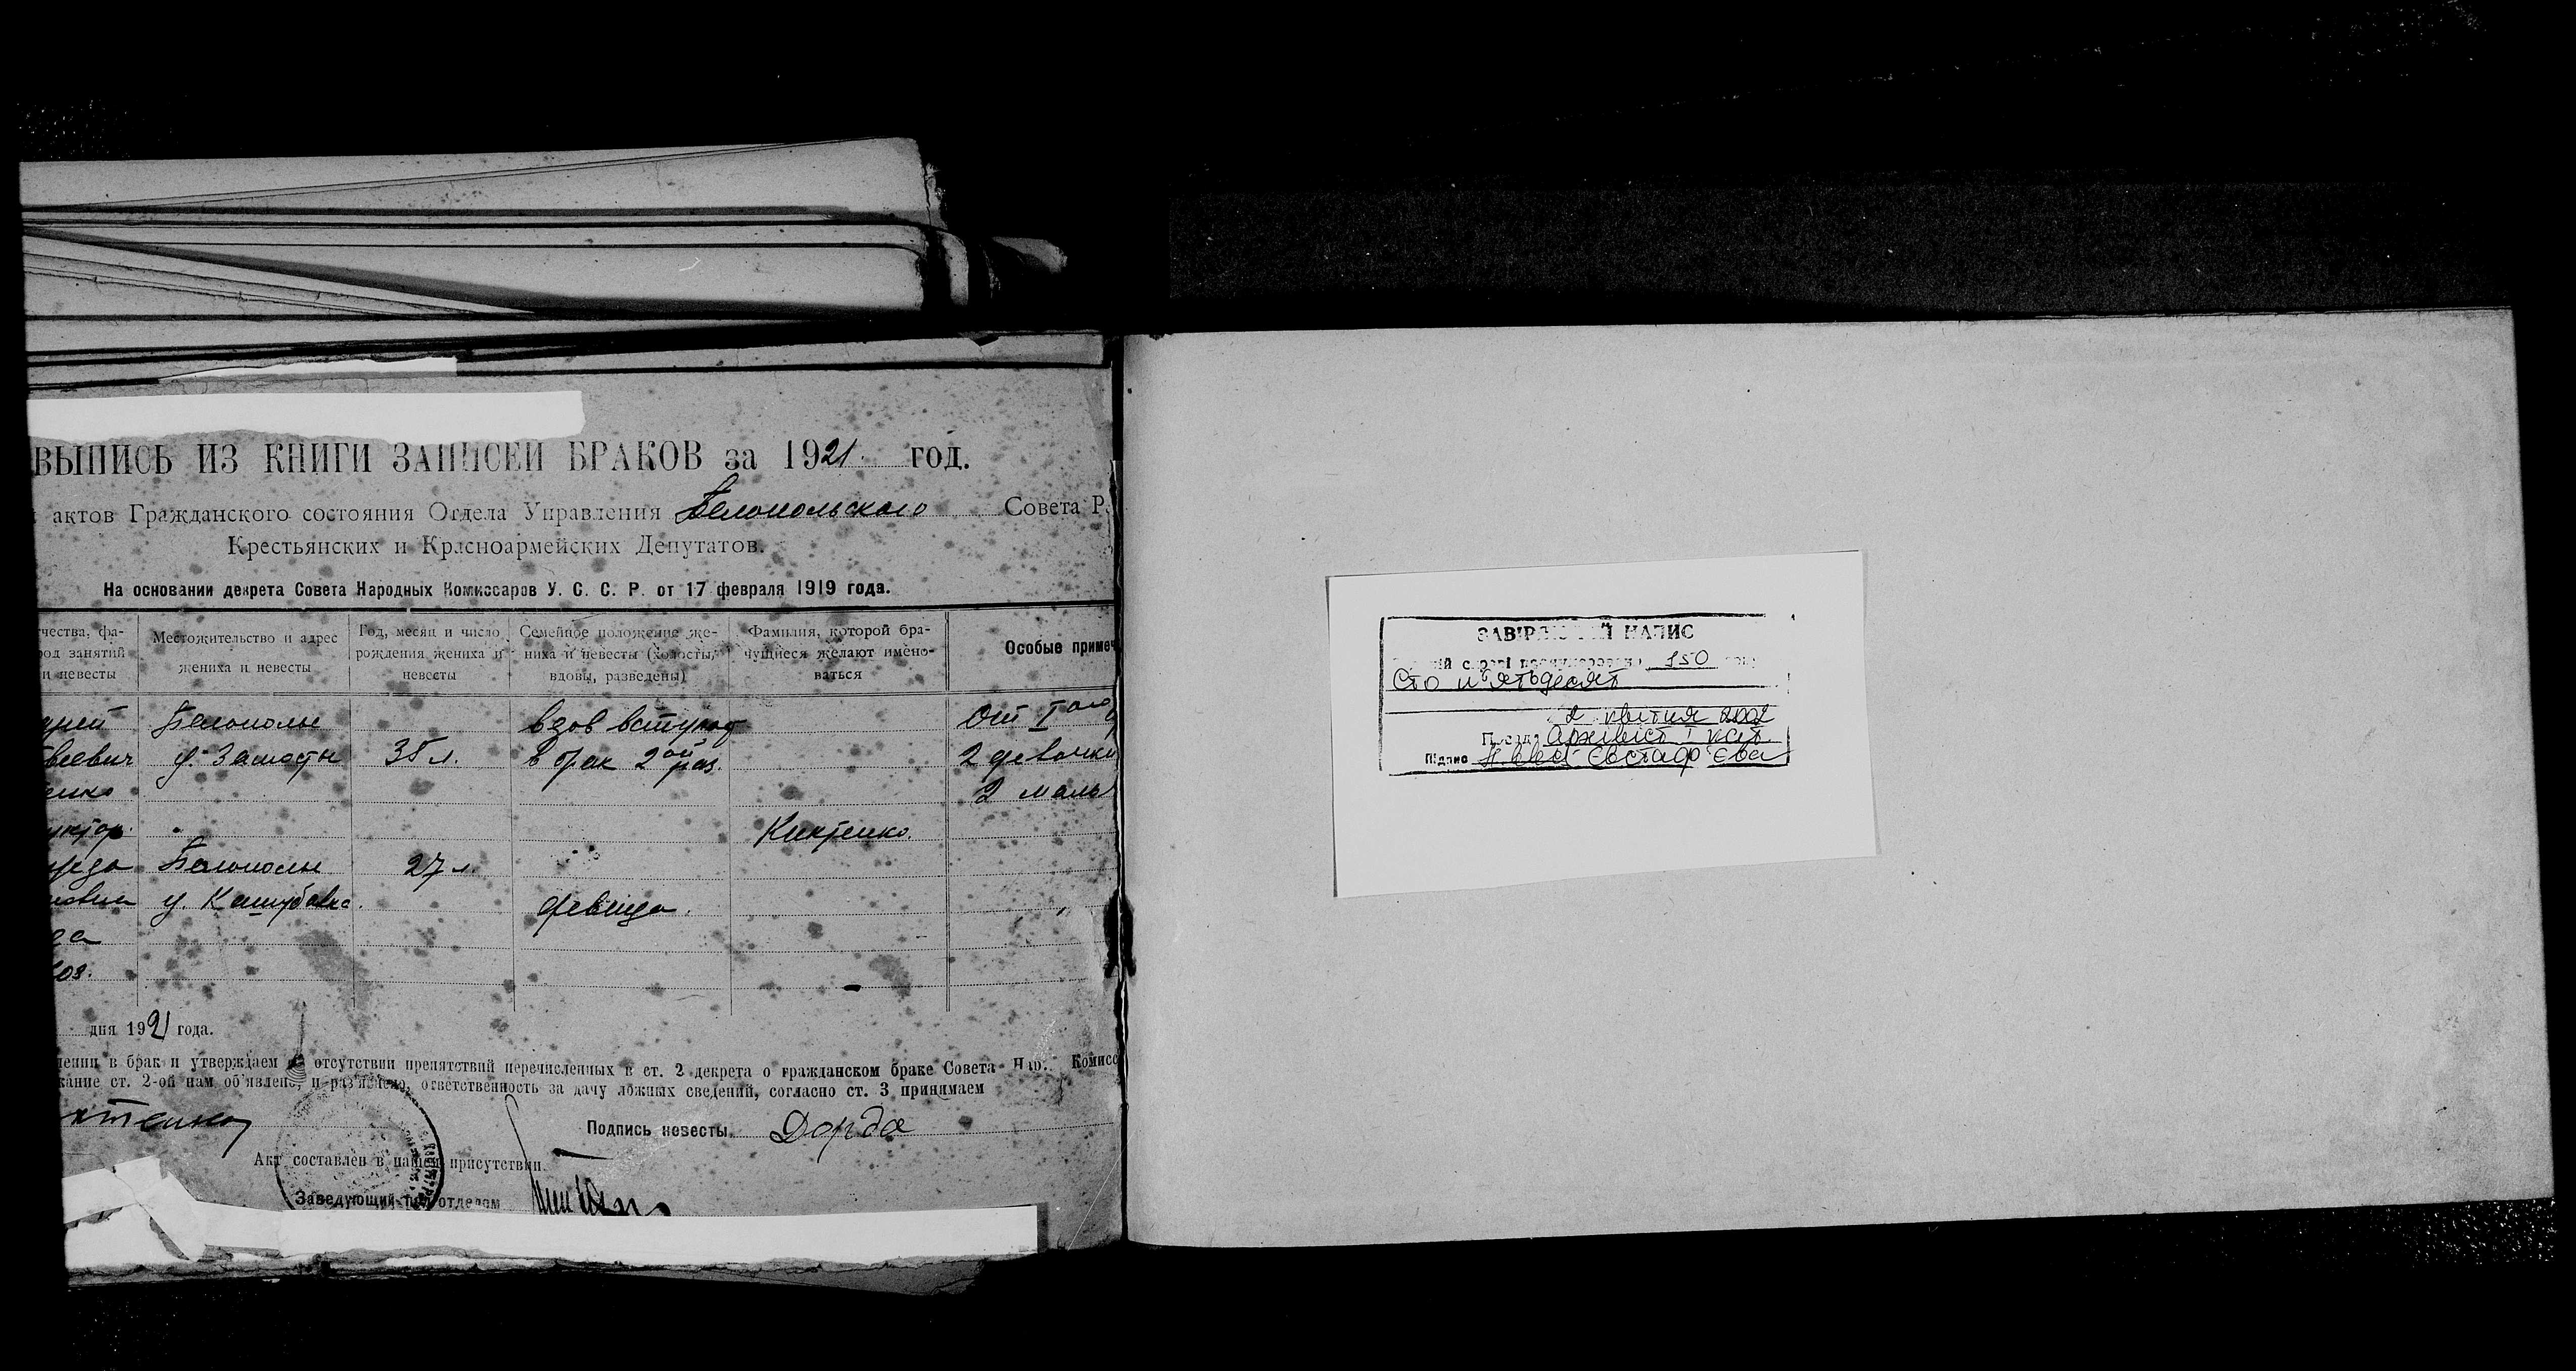 ВЫПИСЬ ИЗ КНИГИ ЗАПИСЕЙ БРАКОВ за 1921 год.
актов Гражданского состояния Отдела Управления Белопольского Совета Р.
Крестьянских и Красноармейских Депутатов.
На основании декрета Совета Народных Комиссаров У. С. С. Р. от 17 февраля 1919 года.
чества, фа-
род занятий
и невесты
Местожительство и адрес
жениха и невесты
Год, месяц и число
рождения жениха и
невесты
Семейное положение же-
ниха и невесты (холосты,
вдовы, разведены)
Фамилия, которой бра-
чущиеся желают имено-
ваться
Особые примеч
Белополье вдов вступает От I
евич у. Замостье 35 л. в брак 2ой раз. 2 девочки
енко 2 маль
уктор. Кихтенко.
Белополье 27 л.
овна у. Кашубовка. девица.
да
хоз.
дня 1921 года.
лении в брак и утверждаем об отсутствии препятствий перечисленных в ст. 2 декрета о гражданском браке Совета Нар. Комисс
жание ст. 2-ой нам об'явлено, и раз'яснено, ответственность за дачу ложных сведений, согласно ст. 3 принимаем
хтенко Подпись невесты. Дорда
Акт составлен в нашем присутствии.
Заведующий под отделом
ЗАВІРЯЮЧИЙ НАПИС
ій справі пронумеровано 150
Сто п'ятьдесят
2 квітня 2002
Посада Архівіст I кат.
Підпис Євстаф'єва